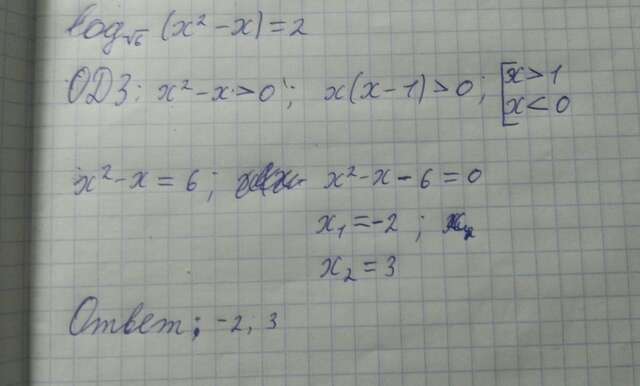 log√6 (x² - x) = 2
ОДЗ: x² - x > 0; x(x - 1) > 0; [x > 1
x < 0
x² - x = 6; x² - x - 6 = 0
x₁ = -2;
x₂ = 3
Ответ: -2; 3